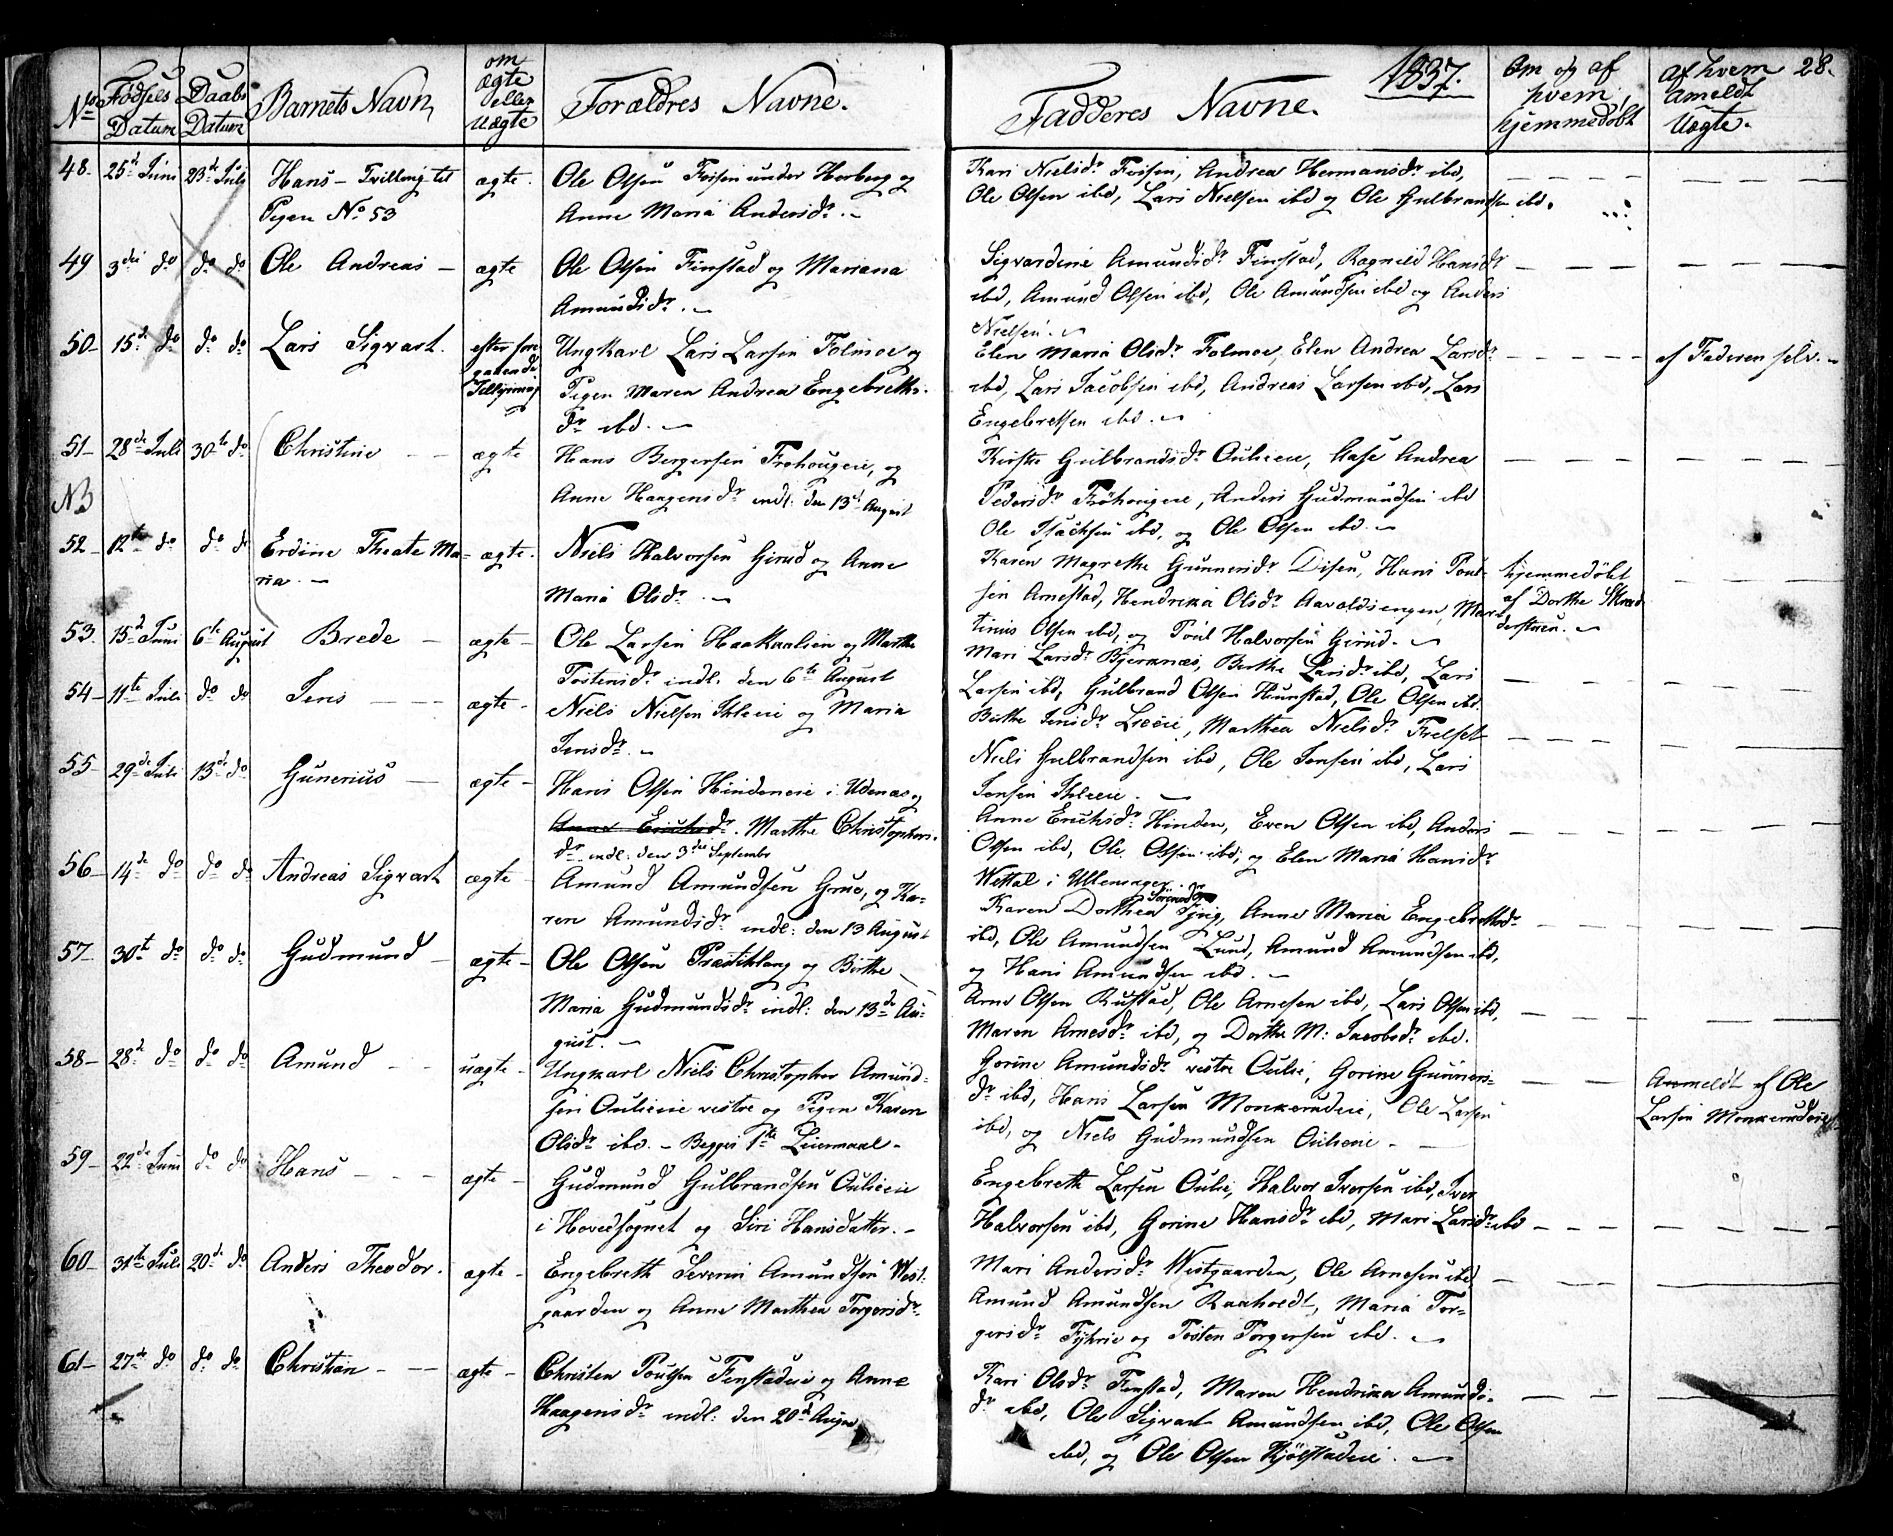 1837.
28.
No
Fødsels Datum
Daabs Datum
Barnets Navn
om ægte eller Uægte
Forældres Navne.
Fadderes Navne.
Om og af hvem hjemmedøbt
af hvem Ameldt Uægte.
48- 25d Juni 23d July Hans - Tvilling til ægte. Ole Olsen under Herberg og
Pigen No 53 Anne Maria Andersdr. -
Kari Nielsdr Andrea Hermansdr ibd,
Ole Olsen ibd, Lars Nielsen ibd og Ole Gulbrandsen ibd.
49 3die do do do Ole Andreas - ægte Ole Olsen Finstad og Mariana
Amundsdr. -
Amundsdr Finstad, Ragnild Hansdr
ibd, Amund Olsen ibd, Ole Amundsen ibd og Anders
Nielsen. -
50- 15de do do do Lars Sigvart. efter fore Ungkarl Lars Larsen og
gaaende Pigen Maren Andrea Engebreths-
dr ibd. -
Elen Maria Olsdr Elen Andrea Larsdr
ibd, Lars Jacobsen ibd, Andreas Larsen ibd, Lars
Engebretsen ibd. -
af Faderen selv. -
51- 28de Juli 30te do Christine - - ægte Hans Bergersen og
NB Anne Haagensdr indl: den 13d August
Gulbrandsdr Aase Andrea
Pedersdr Anders Gudmundsen ibd
Ole Isachsen ibd, og Ole Olsen ibd. -
52- 12te do do do Erdine Theate Ma- ægte. Niels Halvorsen Girud og Anne
ria. - Maria Olsdr. -
Karen Magrethe Gunnersdr Disen, Hans Poul-
sen Arnestad, Hendrika Olsdr Mar-
tinus Olsen ibd, og Poul Halvorsen Girud. -
hjemmedøbt
af Dorthe
53. 15d Juni 6te August Brede - ægte - Ole Larsen og Marthe
Tostensdr indl: den 6te August
Mari Larsdr Bjerknæs, Berthe Larsdr ibd, Lars
Larsen ibd, Gulbrand Olsen Ole Olsen ibd.
54- 11te Juli do do Jens - - ægte - Niels Nielsen og Maria
Jensdr. -
Berthe Jensdr Marthea Nielsdr
Niels Gulbrandsen ibd, Ole Jensen ibd, Lars
Jensen
55- 29de Juli 13de do Gunerius - ægte - Hans Olsen i Udenæs og
Anne Erichsdr. Marthe Christophers-
dr indl: den 3die September
Anne Erichsdr Hinden, Even Olsen ibd, Anders
Olsen ibd, Ole Olsen ibd, og Elen Maria Hansdr
i Ullensager.
56- 14de do do do Andreas Sigvart ægte - Amund Amundsen og Ka-
ren Amundsdr indl: den 13 August
Karen Dorthea Anne Maria Engebrethsdr
ibd, Ole Amundsen Lund, Amund Amundsen ibd,
og Hans Amundsen ibd. -
57- 30te do do do Gudmund - ægte - Ole Olsen og Birthe
Maria Gudmundsdr indl: den 13de Au-
gust. -
Arne Olsen Rustad, Ole Arnesen ibd, Lars Olsen ibd,
Maren Arnesdr ibd, og Dorthe M: Jacobsdr ibd.
58- 28d do do do Amund - - uægte - Ungkarl Niels Christopher Amund-
sen vestre og Pigen Karen
Olsdr ibd. - Begges 1te Leiermaal -
Gorine Amundsdr vestre Gorine Gunners-
dr ibd, Hans Larsen Ole Larsen
ibd, og Niels Gudmundsen -
Anmeldt af Ole
Larsen
59- 22de Juni do do Hans - - - ægte - Gudmund Gulbrandsen
i Hovedsognet og Siri Hansdatter. -
Engebreth Larsen Halvor Iversen ibd, Iver
Halvorsen ibd, Gorine Hansdr ibd, Mari Larsdr ibd
60- 31te Juli 20de do Anders Theodor. ægte - Engebreth Severin Amundsen West-
gaarden og Anne Marthea Torgersdr.
Mari Andersdr Westgaarden, Ole Arnesen ibd
Amund Amundsen Raaholdt, Maria Tor-
gersdr og Tosten Torgersen ibd. -
61- 27de do do do Christian - - - ægte - Christen Poulsen og Anne
Haagensdr indl: den 20d August
Kari Olsdr Finstad, Maren Hendrika Amunds-
dr ibd, Ole Sigvart Amundsen ibd, Ole Olsen
ibd, og Ole Olsen